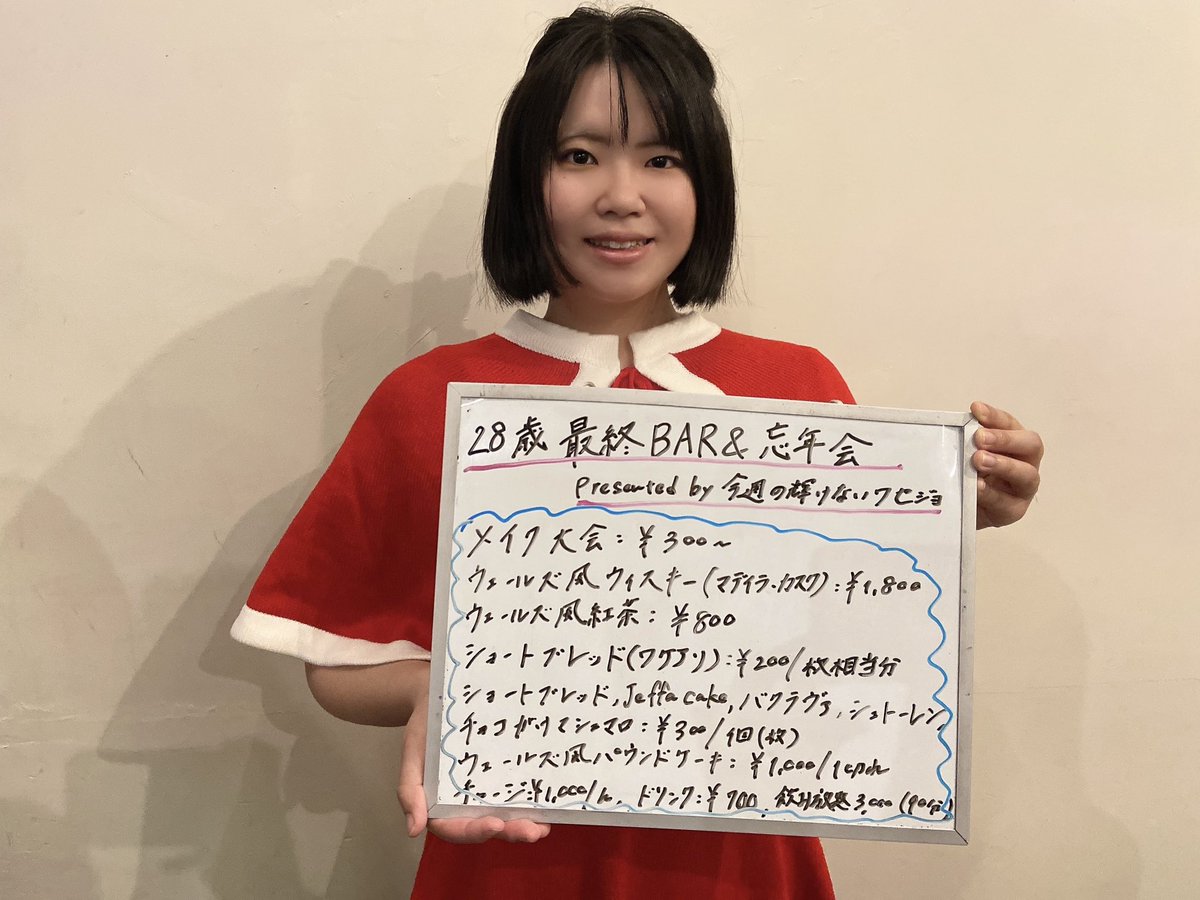 28歳 最終 BAR & 忘年会
Presented by 今週の輝けないワセジョ
メイク大会：¥300～
ウェールズ風ウィスキー(マデイラ・カスク)：¥1,800
ウェールズ風紅茶：¥800
ショートブレッド(ワケアリ)：¥200/枚相当分
ショートブレッド, Jeffa cake, バクラヴァ, シュトーレン,
チョコがけマシュマロ：¥300/個(枚)
ウェールズ風パウンドケーキ：¥1,000/
チャージ:¥1,000/h, ドリンク:¥700, 飲み放題 3,000